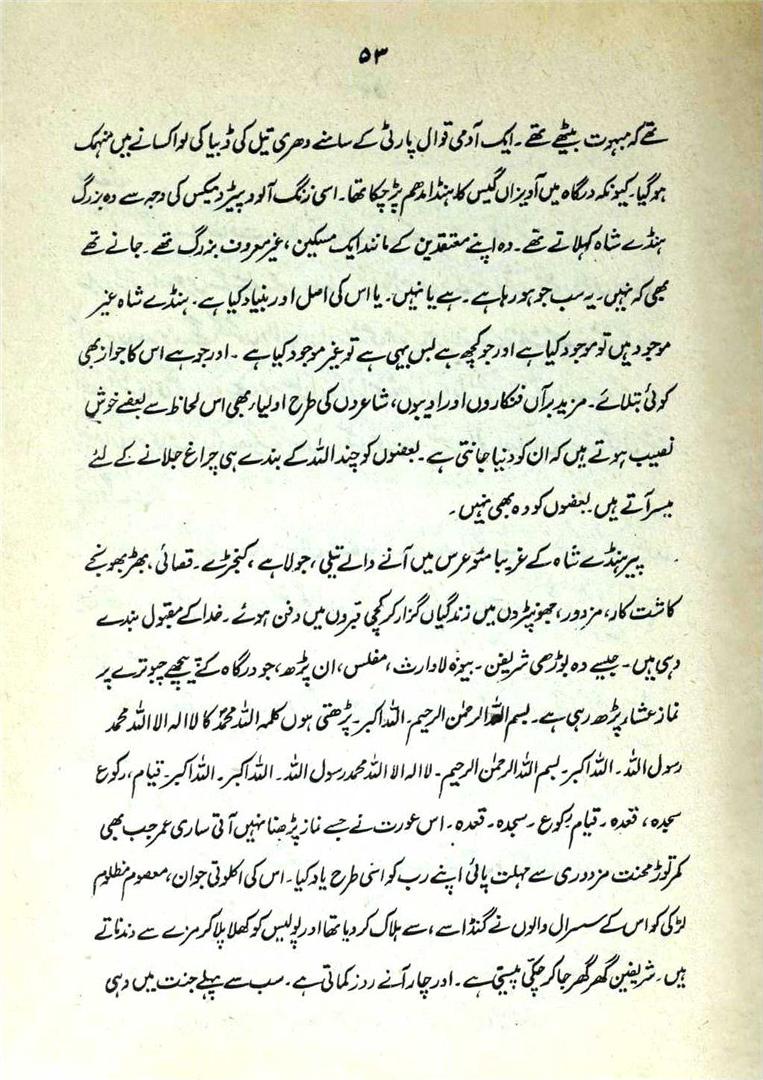 ۵۳
تھے کہ مبہوت بیٹھے تھے۔ ایک آدمی قوال پارٹی کے سامنے دھری تیل کی ڈبیا کی لو اکسانے میں منہمک
ہو گیا۔ کیونکہ درگاہ میں آویزاں گیس کا ہنڈا مدھم پڑ چکا تھا۔ اسی زنگ آلود پیٹرومیکس کی وجہ سے وہ بزرگ
ہنڈے شاہ کہلاتے تھے۔ وہ اپنے معتقدین کے مانند ایک مسکین، غیر معروف بزرگ تھے۔ جانے تھے
بھی کہ نہیں۔ یہ سب جو ہو رہا ہے۔ ہے یا نہیں۔ یا اس کی اصل اور بنیاد کیا ہے۔ ہنڈے شاہ غیر
موجود ہیں تو موجود کیا ہے اور جو کچھ ہے بس یہی ہے تو غیر موجود کیا ہے۔ اور جو ہے اس کا جواز بھی
کوئی بتلائے۔ مزید برآں فنکاروں اور ادیبوں، شاعروں کی طرح اولیاء بھی اس لحاظ سے بعضے خوش
نصیب ہوتے ہیں کہ ان کو دنیا جانتی ہے۔ بعضوں کو چند اللہ کے بندے ہی چراغ جلانے کے لئے
میسر آتے ہیں۔ بعضوں کو وہ بھی نہیں۔
پیر ہنڈے شاہ کے غریبا مئو عرس میں آنے والے تیلی، جولاہے، کنجڑے۔ قصائی، بھڑبھونجے
کاشت کار، مزدور، جھونپڑوں میں زندگیاں گزار کر کچی قبروں میں دفن ہوئے۔ خدا کے مقبول بندے
وہی ہیں۔ جیسے وہ بوڑھی شریفن۔ بیوہ لاوارث، مفلس، ان پڑھ، جو درگاہ کے پیچھے چبوترے پر
نماز عشاء پڑھ رہی ہے۔ بسم اللہ الرحمٰن الرحیم۔ اللہ اکبر۔ پڑھتی ہوں کلمہ اللہ محمدؐ کا لا الہ الا اللہ محمد
رسول اللہ۔ اللہ اکبر۔ بسم اللہ الرحمٰن الرحیم۔ لا الہ الا اللہ محمد رسول اللہ۔ اللہ اکبر۔ اللہ اکبر۔ قیام، رکوع
سجدہ، قعدہ۔ قیام رکوع۔ سجدہ۔ قعدہ۔ اس عورت نے جسے نماز پڑھنا نہیں آتی ساری عمر جب بھی
کمر توڑ محنت مزدوری سے مہلت پائی اپنے رب کو اسی طرح یاد کیا۔ اس کی اکلوتی جوان، معصوم مظلوم
لڑکی کو اس کے سسرال والوں نے گنڈاسے، سے ہلاک کر دیا تھا اور پولیس کو کھلا پلا کر مزے سے دندناتے
ہیں۔ شریفین گھر گھر جا کر چکی پیستی ہے۔ اور چار آنے روز کماتی ہے۔ سب سے پہلے جنت میں وہی